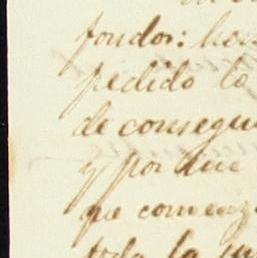 fondos: hem
pedido lo
de consegui
y por que
que comenz
toda la su